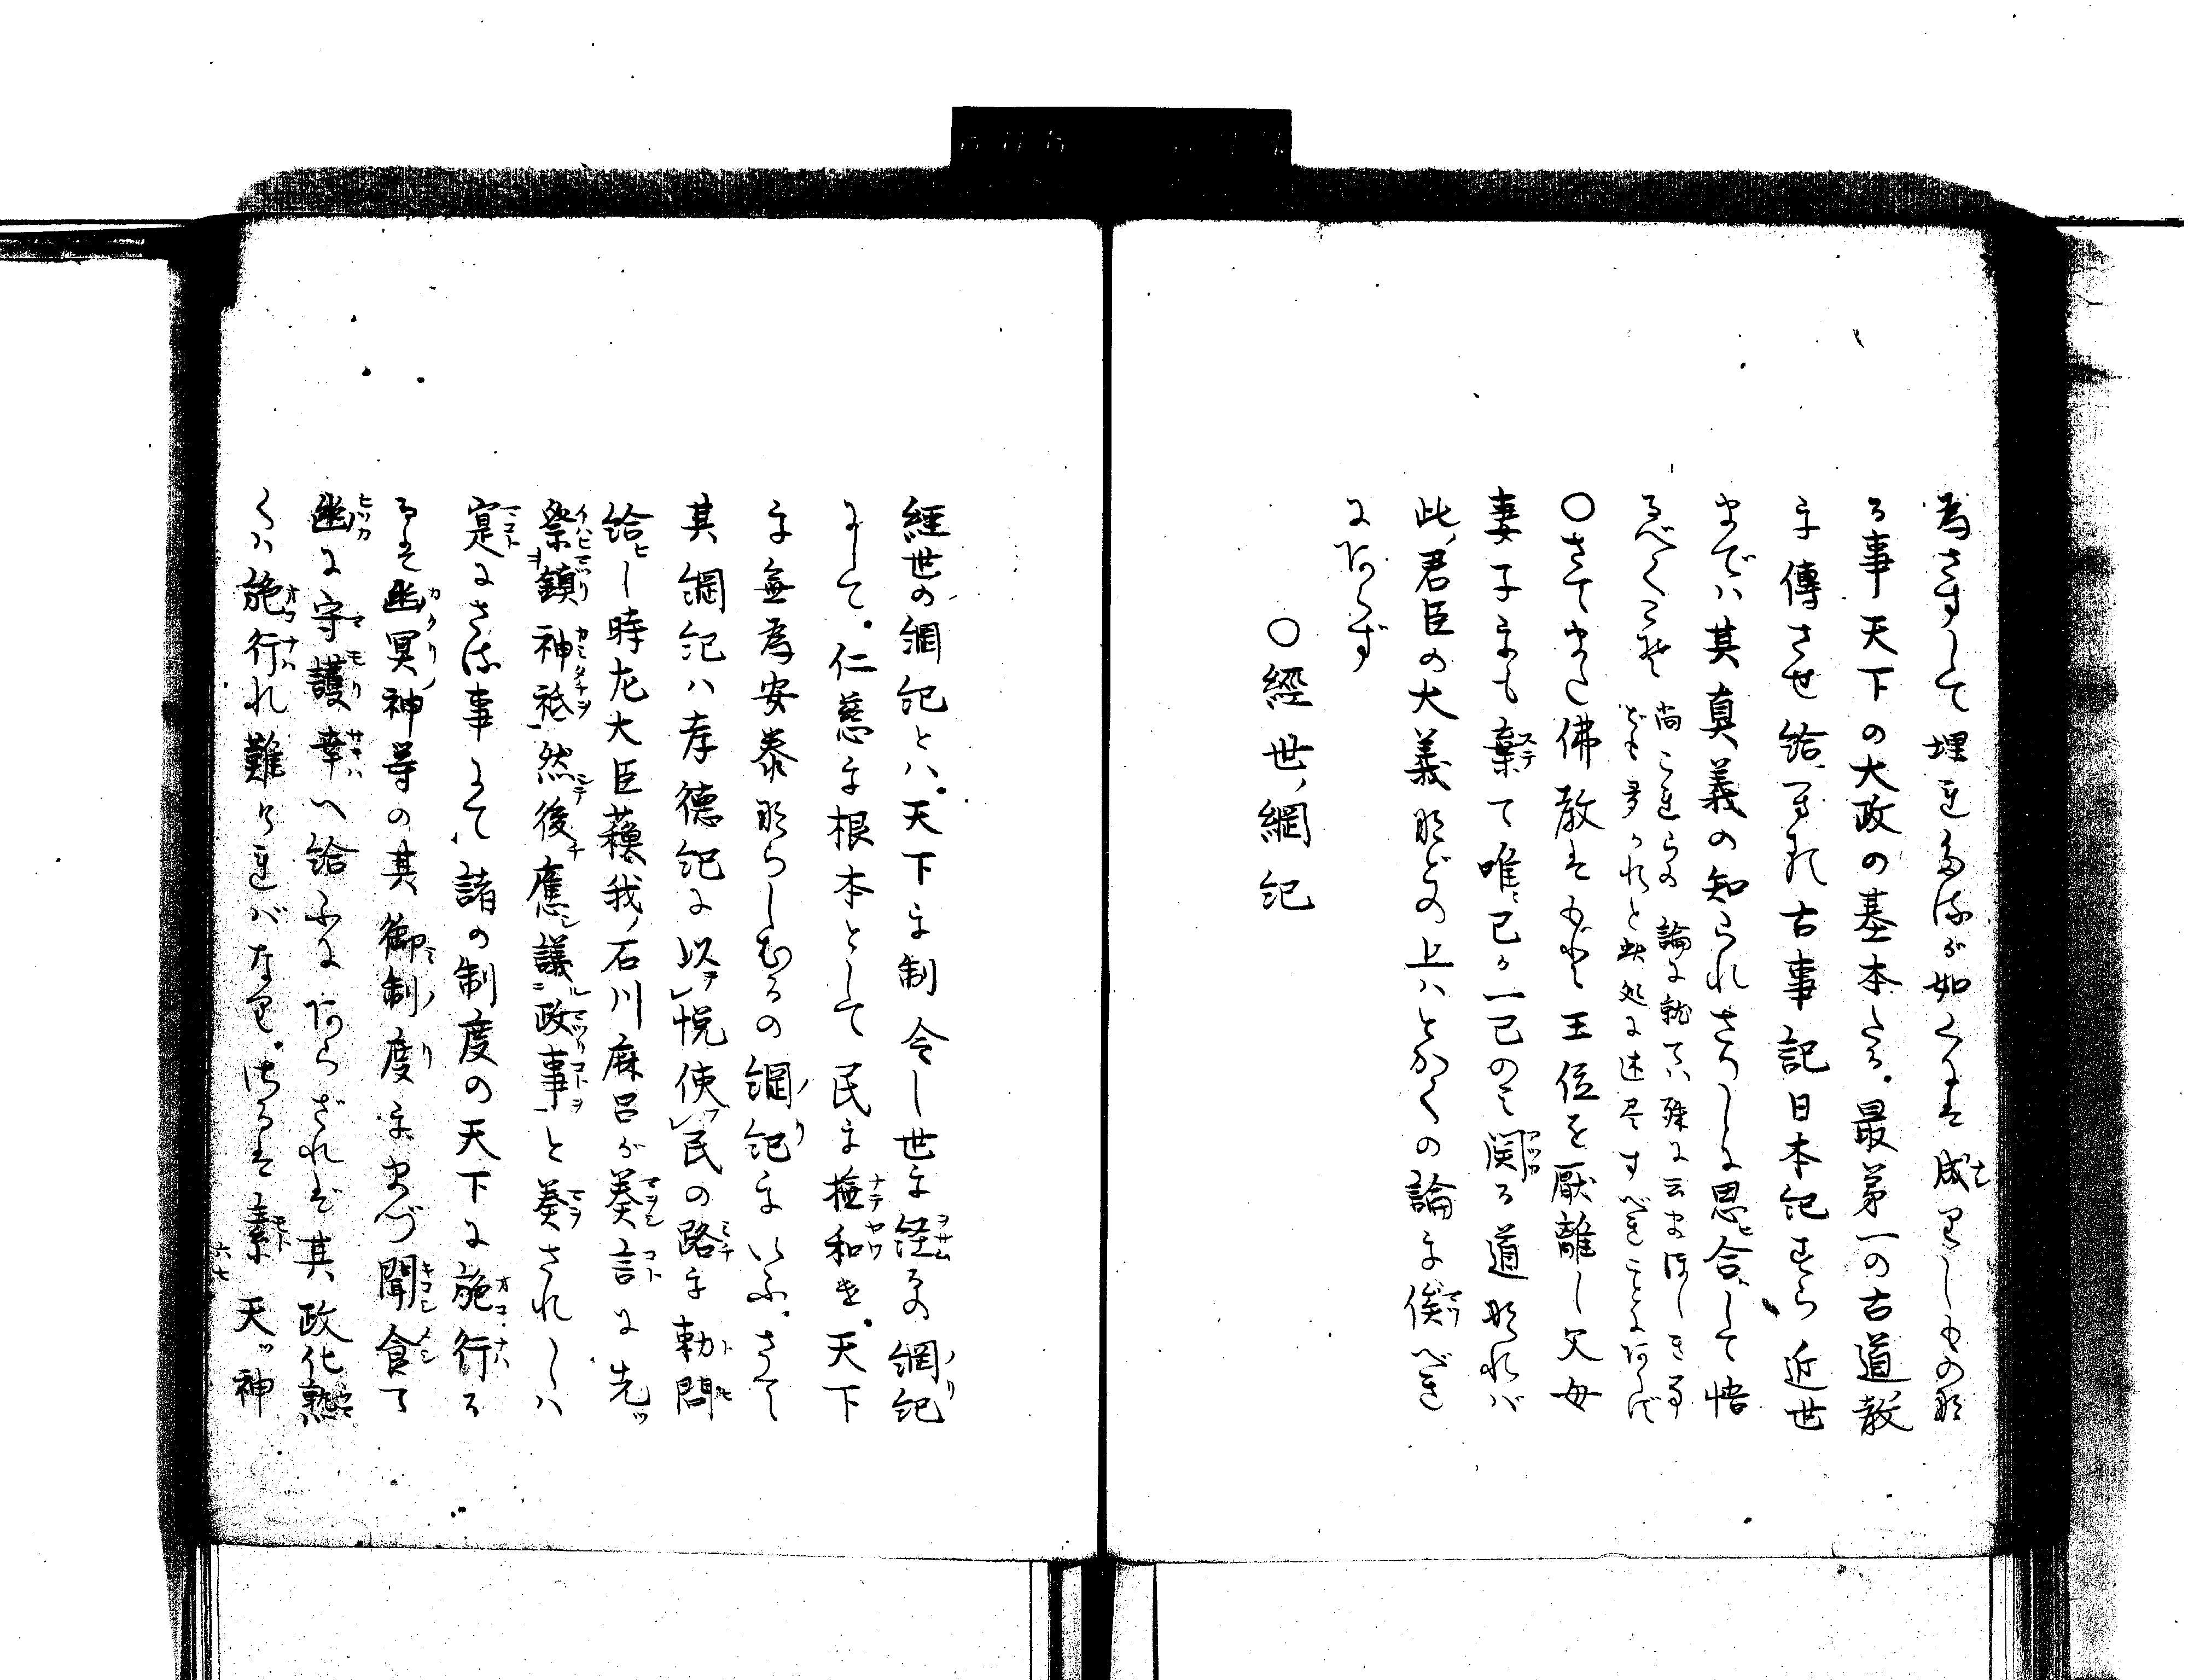 為さずして埋もたるが如くにも成りしものな
る事天下の大政の基本たる。最第一の古道教
を傳させ給へる九古事記日本記すら近世
までハ其真義の知られざりしに思ヒ合して悟
るべくこそ 尚これらの論に就てハ殊に云まほしき事
ども多かれと此処に述尽すべきことにあらず
〇さてまた佛教はもと王位を厭離し父母
妻子をも棄て唯ニ己が一己のミ関る道なれバ
此ノ君臣の大義などの上ハとかくの論を俟べき
にあらず
〇經世ノ綱記
經世の綱記とハ。天下を制令し世を経るの綱記
にして。仁慈を根本として民を撫和せ。天下
を無為安泰ならしむるの綱記をいふ。さて
其綱記ハ孝徳記に以テ悦使フ民の路を勅問
給ヒし時尨大臣蘓我ノ石川麻呂が奏言に先ッ
祭鎮神祗、然後應議政事と奏されしハ
寔にさる事にて、諸の制度の天下に施行る
るも幽冥神等の其御制度をまづ聞食て
幽に守護幸へ給ふにあらざれば其政化熟
くハ施行れ難けれバなり。さるは素天ッ神
六七